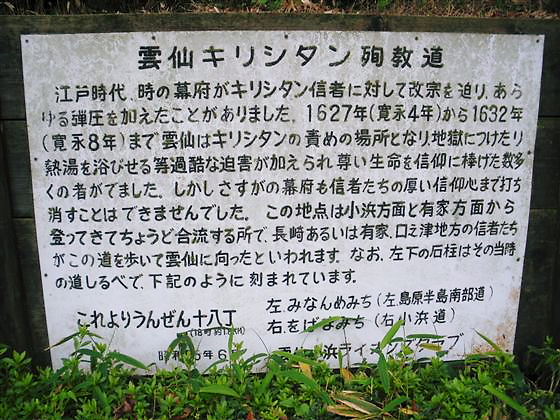 雲仙キリシタン殉教道
江戸時代、時の幕府がキリシタン信者に対して改宗を迫り、あら
ゆる弾圧を加えたことがありました。1627年(寛永4年)から1632年
(寛永8年)まで雲仙はキリシタンの責めの場所となり、地獄につけたり
熱湯を浴びせる等過酷な迫害が加えられ尊い生命を信仰に捧げた数多
くの者がでました。しかしさすがの幕府も信者たちの厚い信仰心まで打ち
消すことはできませんでした。この地点は小浜方面と有家方面から
登ってきてちょうど合流する所で、長崎あるいは有家、口之津地方の信者たち
がこの道を歩いて雲仙に向ったといわれます。なお、左下の石柱はその当時
の道しるべで、下記のように刻まれています。
これよりうんぜん十八丁
左.みなんめみち(左島原半島南部道)
右.をばまみち(右小浜道)
昭和 6
浜ライオンズクラブ